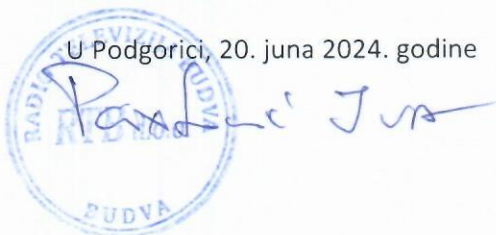 U Podgorici, 20. juna 2024. godine
RADIO TELEVIZIJA BUDVA
RTB d.o.o.
BUDVA